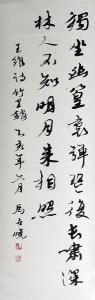 獨坐幽篁裏彈琴復長嘯深
林人不知明月來相照
王維詩竹里館
乙亥年六月馬